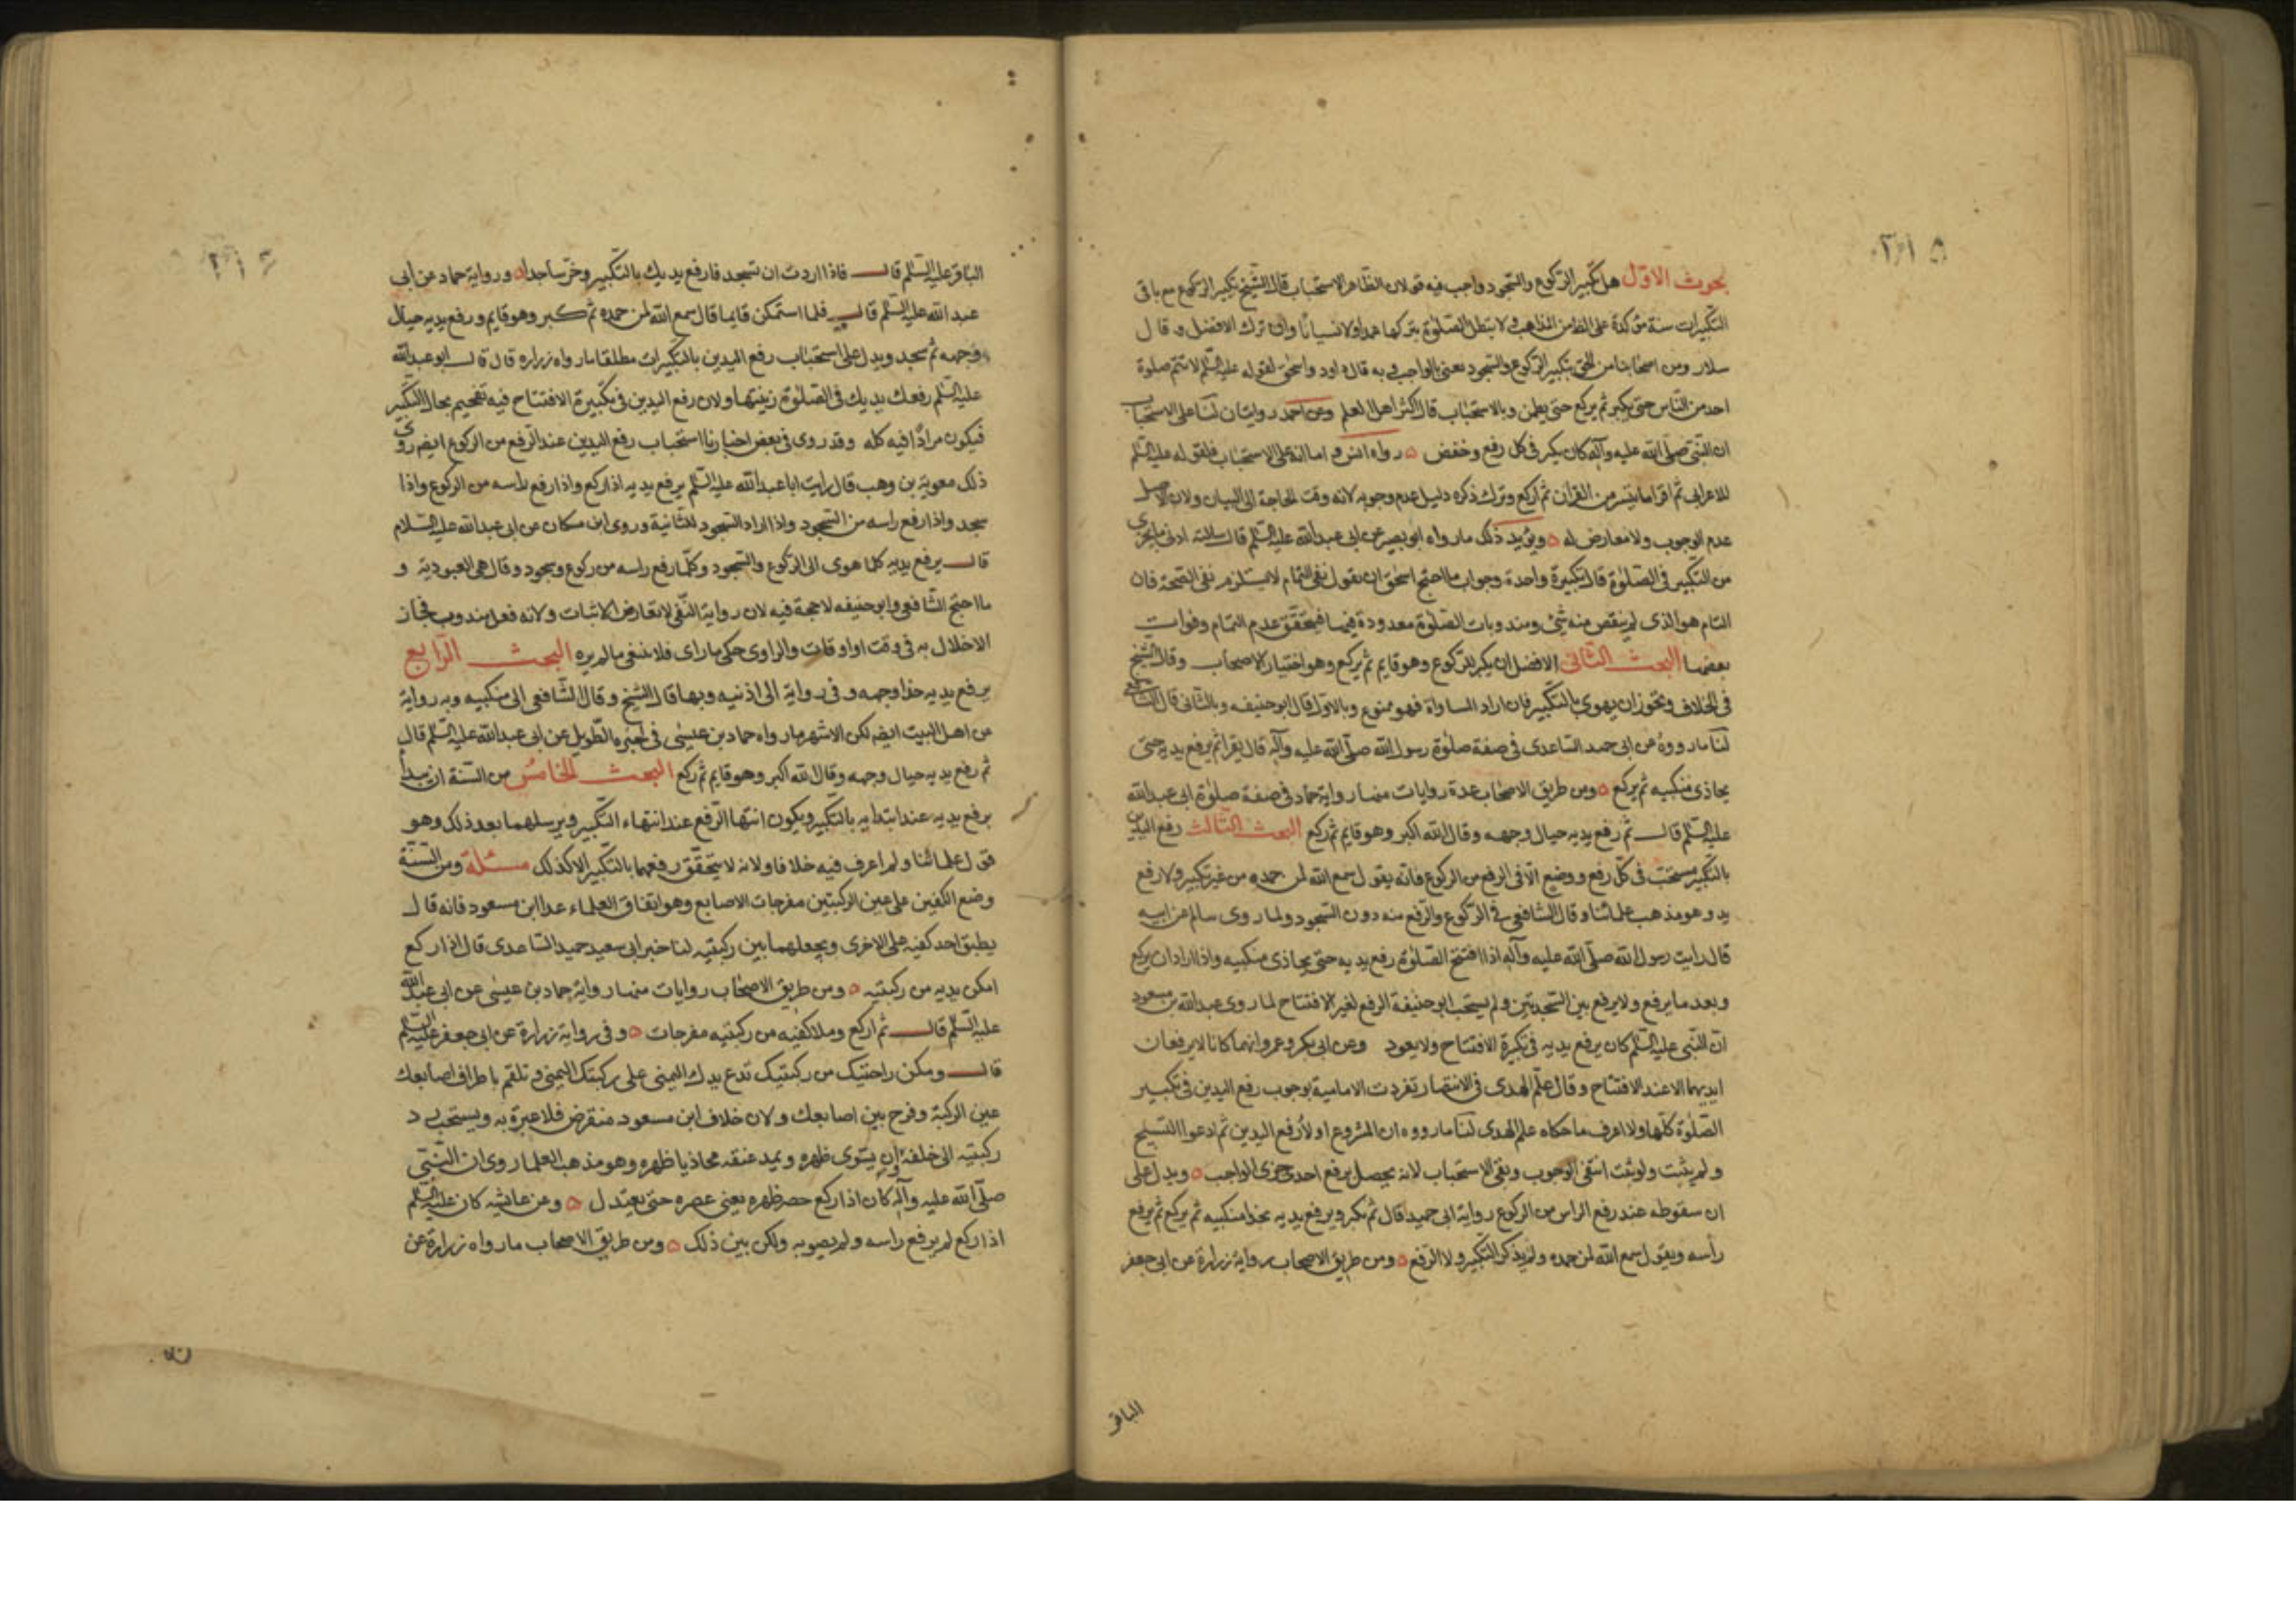 ٢١٥
بحوث الاوّل هل تكبير الركوع والسّجود واجب فيه قولان الظاهر الاستحباب قال الشّيخ تكبير الركوع مع باقى
التكبيرات سنة مؤكدة على الظاهر من المذاهب ولا تبطل الصّلوة بتركها عمدا ولا نسيانا وان ترك الافضل وقال
سلار ومن اصحابنا من الحق تكبير الركوع والسّجود يعنى بالواجب وبه قال داود واسحق لقوله عليه السّلم لا تتم صلوة
احد من النّاس حتى يكبر ثم يركع حتى يطمئن وبالاستحباب قال اكثر اهل العلم وعن احمد روايتان لنا على الاستحباب
ان النّبى صلّى الله عليه وآله كان يكبر فى كل رفع وخفض ه رواه انس و اما انه على الاستحباب فلقوله عليه السّلم
للاعرابى ثم اقرا ما تيسر من القرآن ثم اركع وترك ذكره دليل عدم وجوبه لانه وقت الحاجة الى البيان ولان الاصل
عدم الوجوب ولا معارض له ه ويؤيد ذلك ما رواه ابو بصير عن ابى عبدالله عليه السّلم قال سالته ادنى ما يجزى
من التكبير فى الصلوة قال تكبيرة واحدة وجواب ما احتج اسحق ان نقول نفى التمام لا يستلزم نفى الصّحة فان
التام هو الذى لم ينقص منه شئ ومندوبات الصّلوة معدودة فيها فيتحقّق عدم التمام وفوات
بعضها البحث الثّانى الافضل ان يكبر للركوع وهو قايم ثم يركع وهو اختيار الاصحاب وقال الشّيخ
فى الخلاف ويجوز ان يهوى بالتكبير فان اراد المساواة فهو ممنوع وبالاول قال ابو حنيفه وبالثّانى قال الشافعى
لنا ما رووه عن ابى حميد السّاعدى فى صفة صلوة رسول الله صلّى الله عليه وآله قال يقرا ثم يرفع يديه حتى
يحاذى منكبيه ثم يركع ه ومن طريق الاصحاب عدة روايات منها رواية حماد فى صفة صلوة ابى عبدالله
عليه السّلم قال ثم رفع يديه حيال وجهه وقال الله اكبر وهو قايم ثم ركع البحث الثالث رفع اليدين
بالتكبير مستحبّ فى كلّ رفع ووضع الّا فى الرفع من الركوع فانه يقول سمع الله لمن حمده من غير تكبير ولا رفع
يد وهو مذهب علمائنا وقال الشافعى فى الركوع والرفع منه دون السّجود ولما روى سالم عن ابيه
قال رايت رسول الله صلّى الله عليه وآله اذا افتتح الصّلوة رفع يديه حتى يحاذى منكبيه واذا اراد ان يركع
وبعد ما يرفع ولا يرفع بين السّجدتين ولم يستحب ابو حنيفة الرفع لغير الافتتاح لما روى عبدالله بن مسعود
انّ النّبى عليه السّلم كان يرفع يديه فى تكبيرة الافتتاح ولا يعود وعن ابى بكر وعمر وانهما كانا لا يرفعان
ايديهما الا عند الافتتاح وقال علم الهدى فى الانتصار تفردت الامامية بوجوب رفع اليدين فى تكبير
الصّلوة كلّها ولا اعرف ما حكاه علم الهدى لنا ما رووه ان المشروع اولا رفع اليدين ثم ادعوا النسخ
ولم يثبت ولو ثبت انتفى الوجوب وبقى الاستحباب لانه يحصل برفع احدى جزئى الواجب ه ويدل على
ان سقوطه عند رفع الراس من الركوع رواية ابى حميد قال ثم يكبر ويرفع يديه بحذا منكبيه ثم يركع ثم يرفع
رأسه ويقول سمع الله لمن حمده ولم يذكر التكبير ولا الرفع ه ومن طريق الاصحاب رواية زرارة عن ابى جعفر
الباقر
٢١٦
الباقر عليه السّلم قال فاذا اردت ان تسجد فارفع يديك بالتكبير وخرّ ساجدا ه ورواية حماد عن ابى
عبدالله عليه السّلم قال فلما استمكن قايما قال سمع الله لمن حمده ثم كبر وهو قايم ورفع يديه حيال
وجهه ثم سجد ويدل على استحباب رفع اليدين بالتكبيرات مطلقا ما رواه زراره قال قال ابو عبدالله
عليه السّلم رفعك يديك فى الصلوة زينتها ولان رفع اليدين فى تكبيرة الافتتاح فيه تفخيم بحال التكبير
فيكون مرادا فيه كله وقد روى فى بعض اخبارنا استحباب رفع اليدين عند الرفع من الركوع ايضا روى
ذلك معوية بن وهب قال رايت ابا عبدالله عليه السّلم يرفع يديه اذا ركع واذا رفع راسه من الركوع واذا
سجد واذا رفع راسه من السّجود واذا اراد السّجود للثّانية وروى ابن مسكان عن ابى عبدالله عليه السّلام
قال يرفع يديه كلما هوى الى الركوع والسّجود وكلّما رفع راسه من ركوع وسجود وقال هى العبودية و
ما احتج الشّافعى وابو حنيفه لا حجة فيه لان رواية النّفى لا تعارض الاثبات ولانه فعل مندوب فجاز
الاخلال به فى وقت او اوقات والراوى حكى ما راى فلا ننفى ما لم يره البحث الرّابع
يرفع يديه حذا وجهه وفى رواية الى اذنيه وبها قال الشّيخ وقال الشّافعى الى منكبيه وبه رواية
من اهل البيت ايضا لكن الاشهر ما رواه حماد بن عيسى فى خبره الطّويل عن ابى عبدالله عليه السّلم قال
ثم رفع يديه حيال وجهه وقال الله اكبر وهو قايم ثم ركع البحث الخامس من السّنة ان يبدأ
برفع يديه عند ابتدائه بالتكبير ويكون انتها الرّفع عند انتهاء التكبير ويرسلهما بعد ذلك وهو
قول علمائنا ولم اعرف فيه خلافا ولانه لا يتحقّق رفعهما بالتكبير الا كذلك مسئلة ومن السّنة
وضع الكفين على عين الركبتين مفرجات الاصابع وهو اتفاق العلماء عدا ابن مسعود فانه قال
يطبق احد كفيه على الاخرى ويجعلهما بين ركبتيه لنا خبر ابى سعيد حميد السّاعدى قال اذا ركع
امكن يديه من ركبتيه ه ومن طريق الاصحاب روايات منها رواية حماد بن عيسى عن ابى عبدالله
عليه السّلم قال ثم اركع وملا كفيه من ركبتيه مفرجات ه وفى رواية زرارة عن ابى جعفر عليه السّلم
قال ومكن راحتيك من ركبتيك تدع يدك اليمنى على ركبتك اليمنى وتلقم باطراف اصابعك
عين الركبة وفرج بين اصابعك ولان خلاف ابن مسعود منقرض فلا عبرة به ويستحب رد
ركبتيه الى خلفه وان يستوى ظهره ويمد عنقه محاذيا ظهره وهو مذهب العلما روى ان النبى
صلّى الله عليه وآله كان اذا ركع حصر ظهره يعنى عصره حتى يعتدل ه وعن عايشه كان عليه السّلم
اذا ركع لم يرفع راسه ولم يصوبه ولكن بين ذلك ه ومن طريق الاصحاب ما رواه زرارة عن